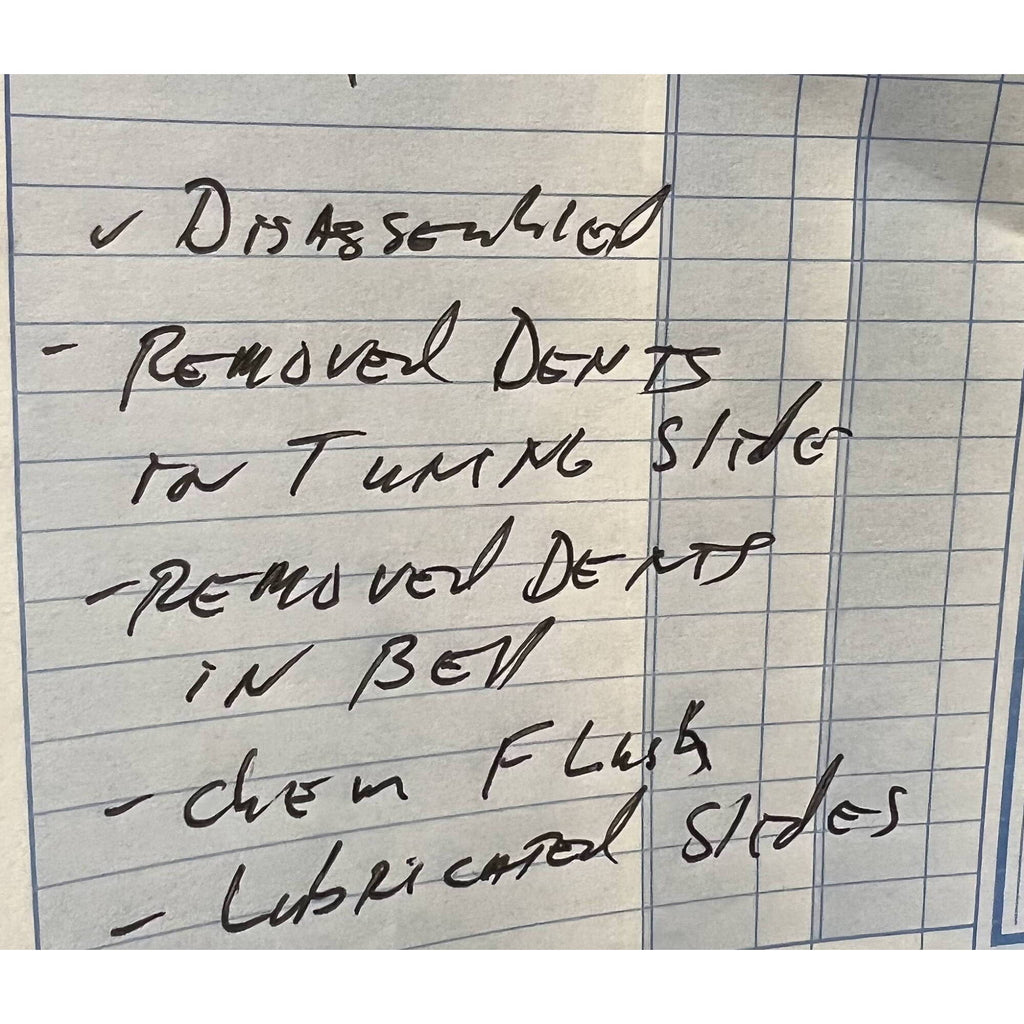 ✓ Disassembled
- Removed Dents
in Tuning Slide
- Removed Dents
in Bell
- Chem Flush
- Lubricated Slides